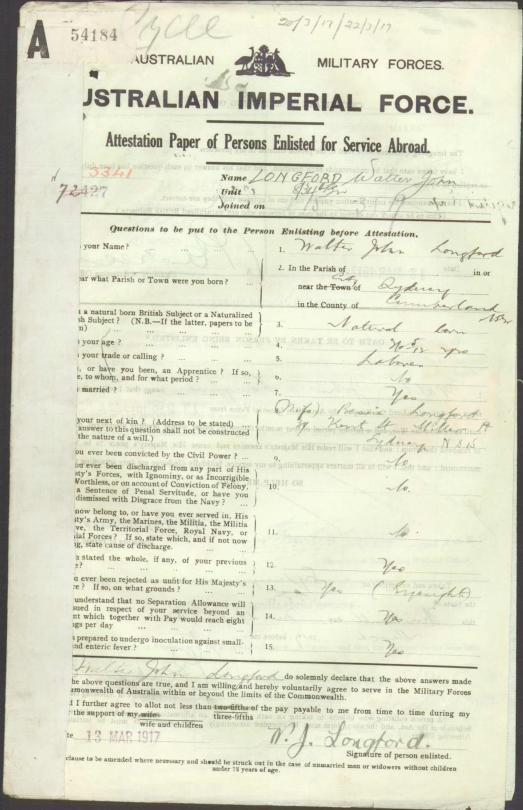 A
54184
20/3/17 22/3/17
AUSTRALIAN MILITARY FORCES.
USTRALIAN IMPERIAL FORCE.
Attestation Paper of Persons Enlisted for Service Abroad.
3341
72427
Name LONGFORD Walter John
Unit
Joined on
Questions to be put to the Person Enlisting before Attestation.
your Name? ... 1. Walter John Longford
ear what Parish or Town were you born? ... 2. In the Parish of in or
near the Town of Sydney
in the County of Cumberland NSW
a natural born British Subject or a Naturalized
sh Subject? (N.B.—If the latter, papers to be
n) ... 3. Natural born
your age? ... 4.
your trade or calling? ... 5. Laborer
, or have you been, an Apprentice? If so,
e, to whom, and for what period? ... 6. No
married? ... 7. Yes
your next of kin? (Address to be stated)
answer to this question shall not be constructed
the nature of a will.)
(Wife) Bessie Longford
Kent St
Sydney NSW
ou ever been convicted by the Civil Power? ... 9. No
ou ever been discharged from any part of His
sty's Forces, with Ignominy, or as Incorrigible
Worthless, or on account of Conviction of Felony,
a Sentence of Penal Servitude, or have you
dismissed with Disgrace from the Navy? ... 10. No.
now belong to, or have you ever served in, His
ty's Army, the Marines, the Militia, the Militia
ve, the Territorial Force, Royal Navy, or
ial Forces? If so, state which, and if not now
g, state cause of discharge. 11. No
stated the whole, if any, of your previous
e? 12. Yes
u ever been rejected as unfit for His Majesty's
e? If so, on what grounds? 13. Yes (Eyesight)
understand that no Separation Allowance will
sued in respect of your service beyond an
nt which together with Pay would reach eight
ngs per day 14. Yes
prepared to undergo inoculation against small-
nd enteric fever? 15. Yes
Walter John Longford do solemnly declare that the above answers made
he above questions are true, and I am willing and hereby voluntarily agree to serve in the Military Forces
mmonwealth of Australia within or beyond the limits of the Commonwealth.
d I further agree to allot not less than two-fifths of the pay payable to me from time to time during
the support of my wife three-fifths
wife and children
te 13 MAR 1917
W. J. Longford.
Signature of person enlisted.
clause to be amended where necessary and should be struck out in the case of unmarried men or widowers without children
under 18 years of age.